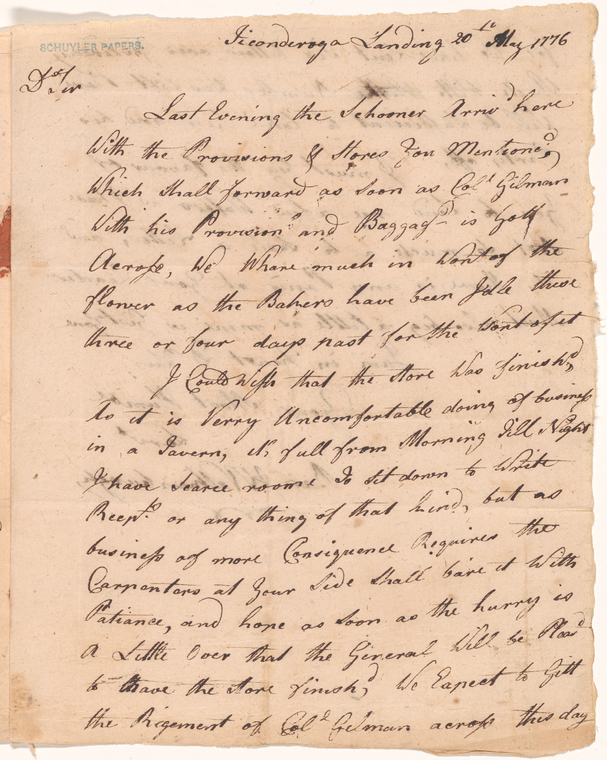 SCHUYLER PAPERS.
Ticonderoga Landing 20th May 1776
Dr Sir
Last Evening the Schooner Arriv'd here
With the Provisions & Stores You Mention'd,
Which shall forward as soon as Coll Gilman
With his Provisions and Baggage is Gott
Across, We Whare much in Want of the
flower as the Bakers have been Idle these
three or four days past for the Want of it
I Could Wish that the store Was finish'd,
As it is Verry Uncomfortable doing of business
in a Tavern, it's full from Morning Till Night
I have scarce roome To sit down to Write
Recpts or any thing of that kind, but as
business of more Consiquence Requires the
Carpenters at Your Side shall bare it With
Patiance, and hope as soon as the hurry is
A Little Over that the General Will be Pleas'd
to have the store finish'd, We Expect to Gitt
the Rigement of Coll Gilman across this day